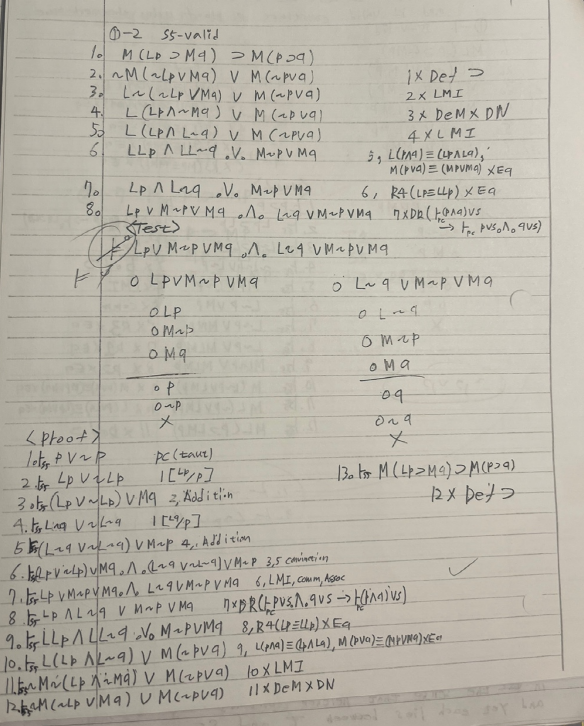 ①-2 S5-valid
1. M(Lp ⊃ Mq) ⊃ M(p⊃q)
2. ~M(~Lp∨Mq) ∨ M(~p∨q) 1 × Def ⊃
3. L~(~Lp∨Mq) ∨ M(~p∨q) 2 × LMI
4. L(Lp∧~Mq) ∨ M(~p∨q) 3 × DeM × DN
5. L(Lp∧L~q) ∨ M(~p∨q) 4 × LMI
6. LLp ∧ LL~q .∨. M~p∨Mq 5, L(p∧q)≡(Lp∧Lq),
M(p∨q)≡(Mp∨Mq) × Eq
7. Lp ∧ L~q .∨. M~p∨Mq 6, R4(Lp≡LLp) × Eq
8. Lp∨M~p∨Mq .∧. L~q∨M~p∨Mq 7×DR(⊢(p∧q)∨s
→ ⊢pc p∨s.∧.q∨s)
<Test>
Lp∨M~p∨Mq .∧. L~q∨M~p∨Mq
⊨
0 Lp∨M~p∨Mq 0 L~q∨M~p∨Mq
0 Lp 0 L~q
0 M~p 0 M~p
0 Mq 0 Mq
0 p 0 q
0 ~p 0 ~q
× ×
<proof>
1. ⊢S5 p∨~p PC(taut)
2. ⊢S5 Lp∨~Lp 1[Lp/p]
3. ⊢S5 (Lp∨~Lp)∨Mq 2, Addition
4. ⊢S5 L~q∨~L~q 1[L~q/p]
5. ⊢S5 (L~q∨~L~q)∨M~p 4, Addition
6. ⊢S5 (Lp∨~Lp)∨Mq .∧. (L~q∨~L~q)∨M~p 3,5
7. ⊢S5 Lp∨M~p∨Mq .∧. L~q∨M~p∨Mq 6, LMI, Comm, Assoc
8. ⊢S5 Lp∧L~q∨M~p∨Mq 7×DR(⊢pc p∨s.∧.q∨s → ⊢pc(p∧q)∨s)
9. ⊢S5 LLp∧LL~q .∨. M~p∨Mq 8, R4(Lp≡LLp) × Eq
10. ⊢S5 L(Lp∧L~q)∨M(~p∨q) 9, L(p∧q)≡(Lp∧Lq), M(p∨q)≡(Mp∨Mq)×Eq
11. ⊢S5 ~M~(Lp∧~Mq)∨M(~p∨q) 10×LMI
12. ⊢S5 ~M(~Lp∨Mq)∨M(~p∨q) 11×DeM×DN
13. ⊢S5 M(Lp⊃Mq)⊃M(p⊃q)
12×Def ⊃